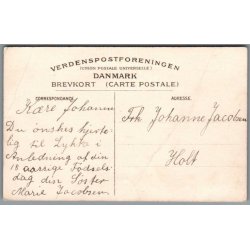 VERDENSPOSTFORENINGEN
(UNION POSTALE UNIVERSELLE)
DANMARK
BREVKORT (CARTE POSTALE)
CORRESPONDANCE.
ADRESSE.
Kære Johanne
Du ønskes hjerte-
lig til Lykke i
Anledning af din
18 aarige Fødsels
dag din Søster
Marie Jacobsen
Frk Johanne Jacobsen
Holt